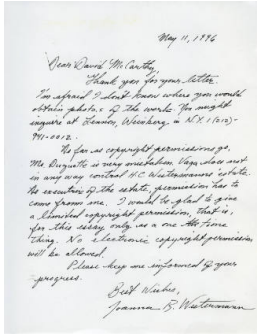 May 11, 1996
Dear David McCarthy,
Thank you for your letter.
I'm afraid I don't know where you would
obtain photos of the work. You might
inquire at Lennon, Weinberg in N.Y. 1 (212)-
941-0012.
As far as copyright permissions go,
Ms. Duquette is very mistaken. Vaga does not
in any way control H.C Westermann's estate.
As executrix of the estate, permission has to
come from me. I would be glad to give
a limited copyright permission, that is,
for this essay only as a one time
thing. No electronic copyright permission
will be allowed.
Please keep me informed of your
progress.
Best Wishes,
Joanna B. Westermann